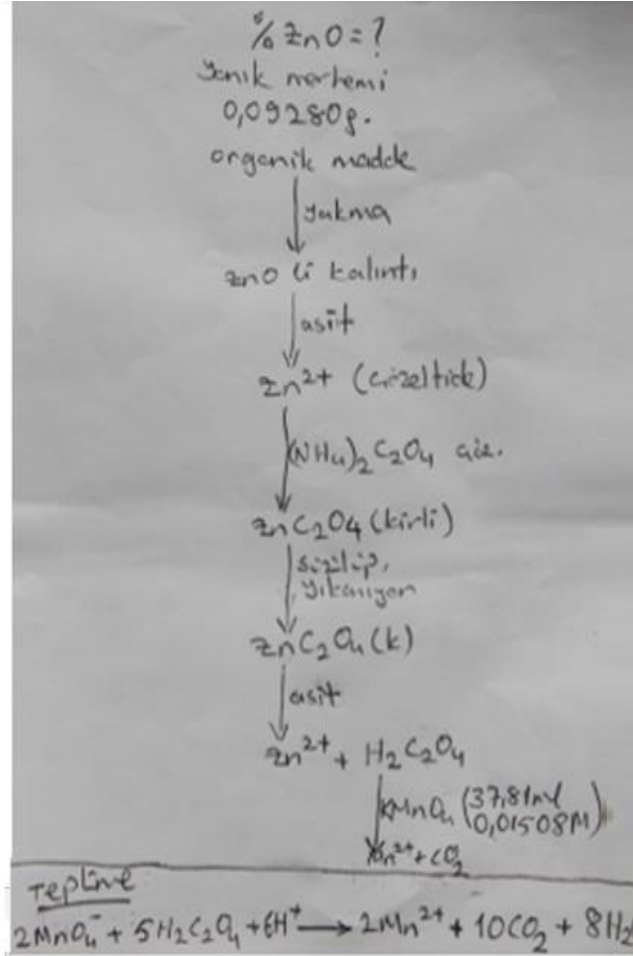 % ZnO = ?
Yanık merhemi
0,09280g.
organik madde
yakma
ZnO li kalıntı
asit
Zn²⁺ (çözeltide)
(NH₄)₂C₂O₄ çöz.
ZnC₂O₄ (kirli)
süzülüp,
yıkanıyor
ZnC₂O₄ (k)
asit
Zn²⁺ + H₂C₂O₄
KMnO₄ (37,81ml
0,01508M)
Mn²⁺ + CO₂
Tepkime
2MnO₄⁻ + 5H₂C₂O₄ + 6H⁺ → 2Mn²⁺ + 10CO₂ + 8H₂